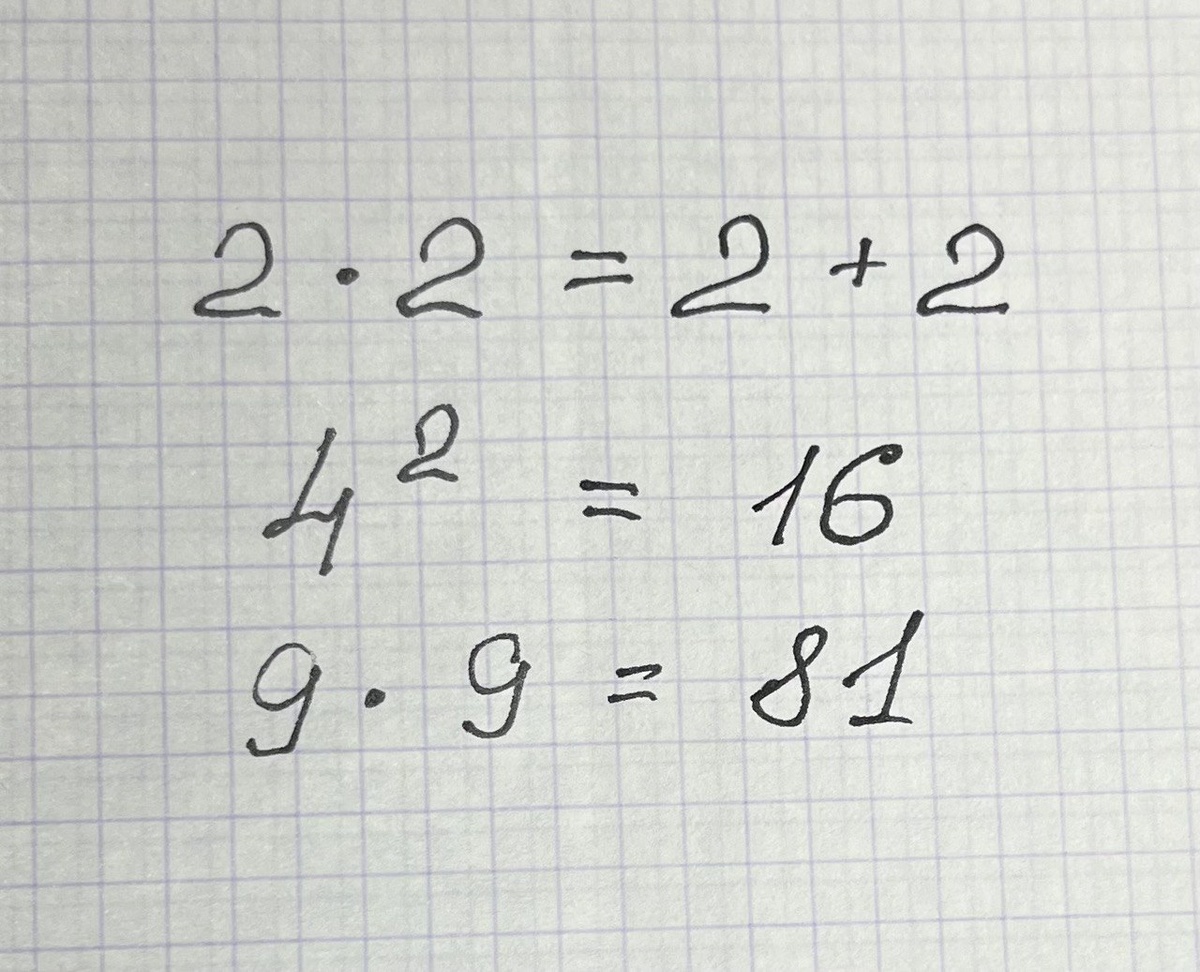 2 · 2 = 2 + 2
4² = 16
9 · 9 = 81